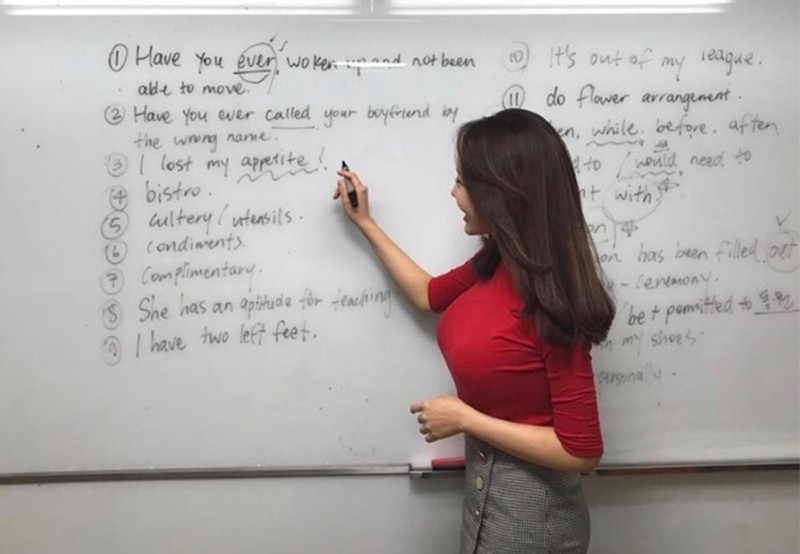 ① Have you ever, woken up and not been
able to move.
② Have you ever called your boyfriend by
the wrong name.
③ I lost my appetite!
④ bistro.
⑤ cultery / utensils.
⑥ condiments.
⑦ complimentary.
⑧ She has an aptitude for teaching
⑨ I have two left feet.
⑩ It's out of my league.
⑪ do flower arrangement.
while. before. after
/ would need to
with.
has been filled out
- ceremony.
permitted to
my shoes